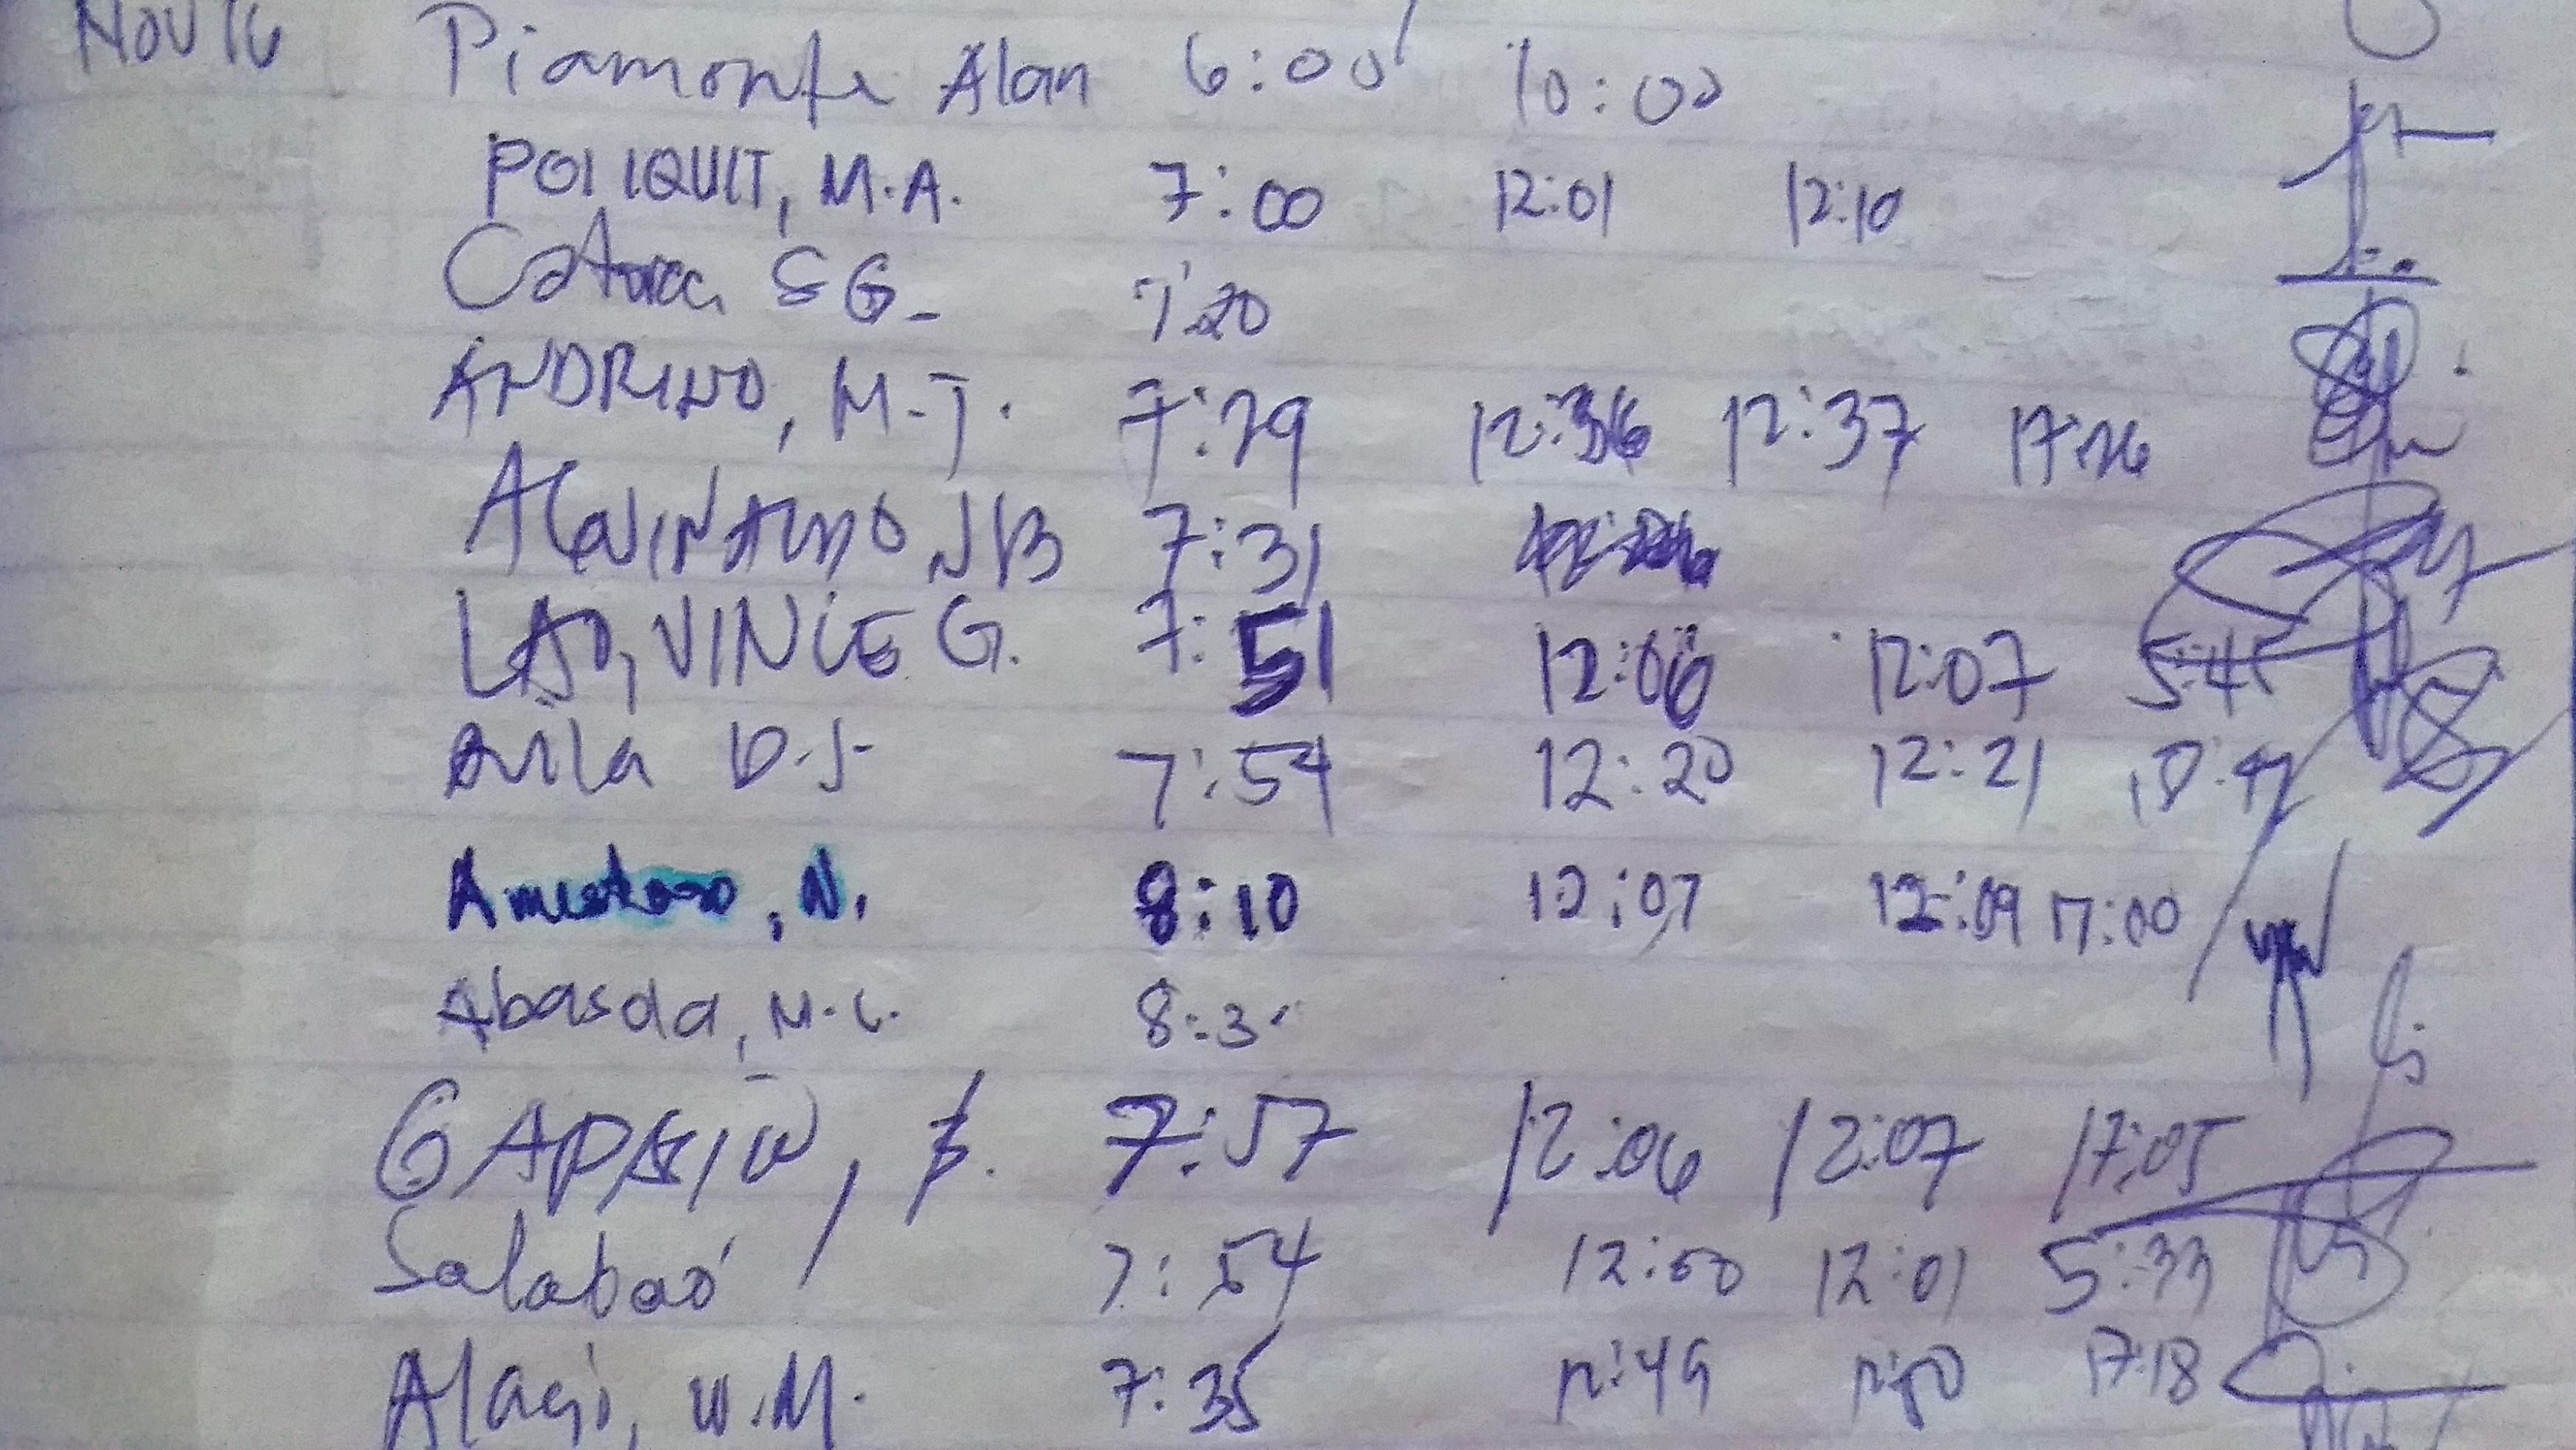 Nov 16 Piamonte Alan 6:00 10:00
POLIQUIT, M.A. 7:00 12:01 12:10
SG. 7:20
ANDRINO, M.J. 7:29 12:36 12:37 17:26
AGUINALDO JB 7:31
LAO, VINCE G. 7:51 12:06 12:07 5:45
Avila D.J. 7:54 12:20 12:21
N. 8:10 12:07 12:09 17:00
Abasola, N.C.
7:57 12:06 12:07 17:05
Salabao 7:54 12:00 12:01 5:33
W.M. 7:35 12:49 12:50 17:18